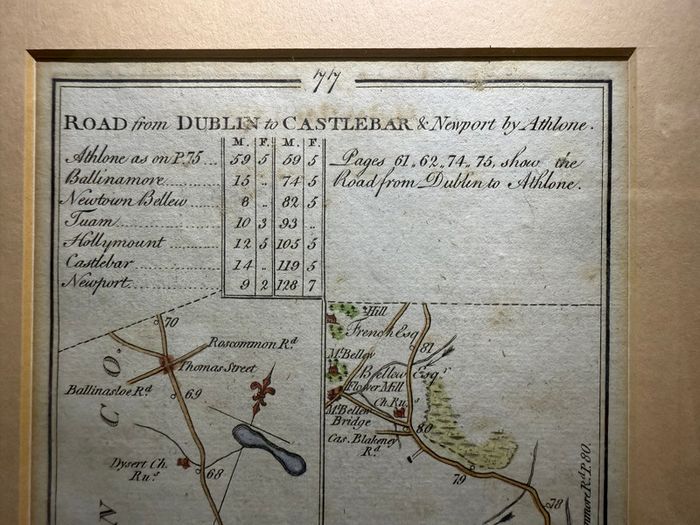 77
ROAD from DUBLIN to CASTLEBAR & Newport by Athlone.
M. F. M. F.
Athlone as on P.75 ... 59 5 59 5
Ballinamore 15 .. 74 5
Newtown Bellew 8 .. 82 5
Tuam 10 3 93 ..
Hollymount 12 5 105 5
Castlebar 14 .. 119 5
Newport 9 2 128 7
Pages 61, 62, 74, 75, show the
Road from Dublin to Athlone.
70
Roscommon Rd
Thomas Street
Ballinasloe Rd
69
Dysert Ch.
Rus
68
C O.
N
Hill
French Esq
81
Mt Bellew
Bellew Esqr
Flower Mill
Ch. Rus
Mt Bellew
Bridge
80
Cas. Blakeney
Rd
79
78
Rd P. 80.